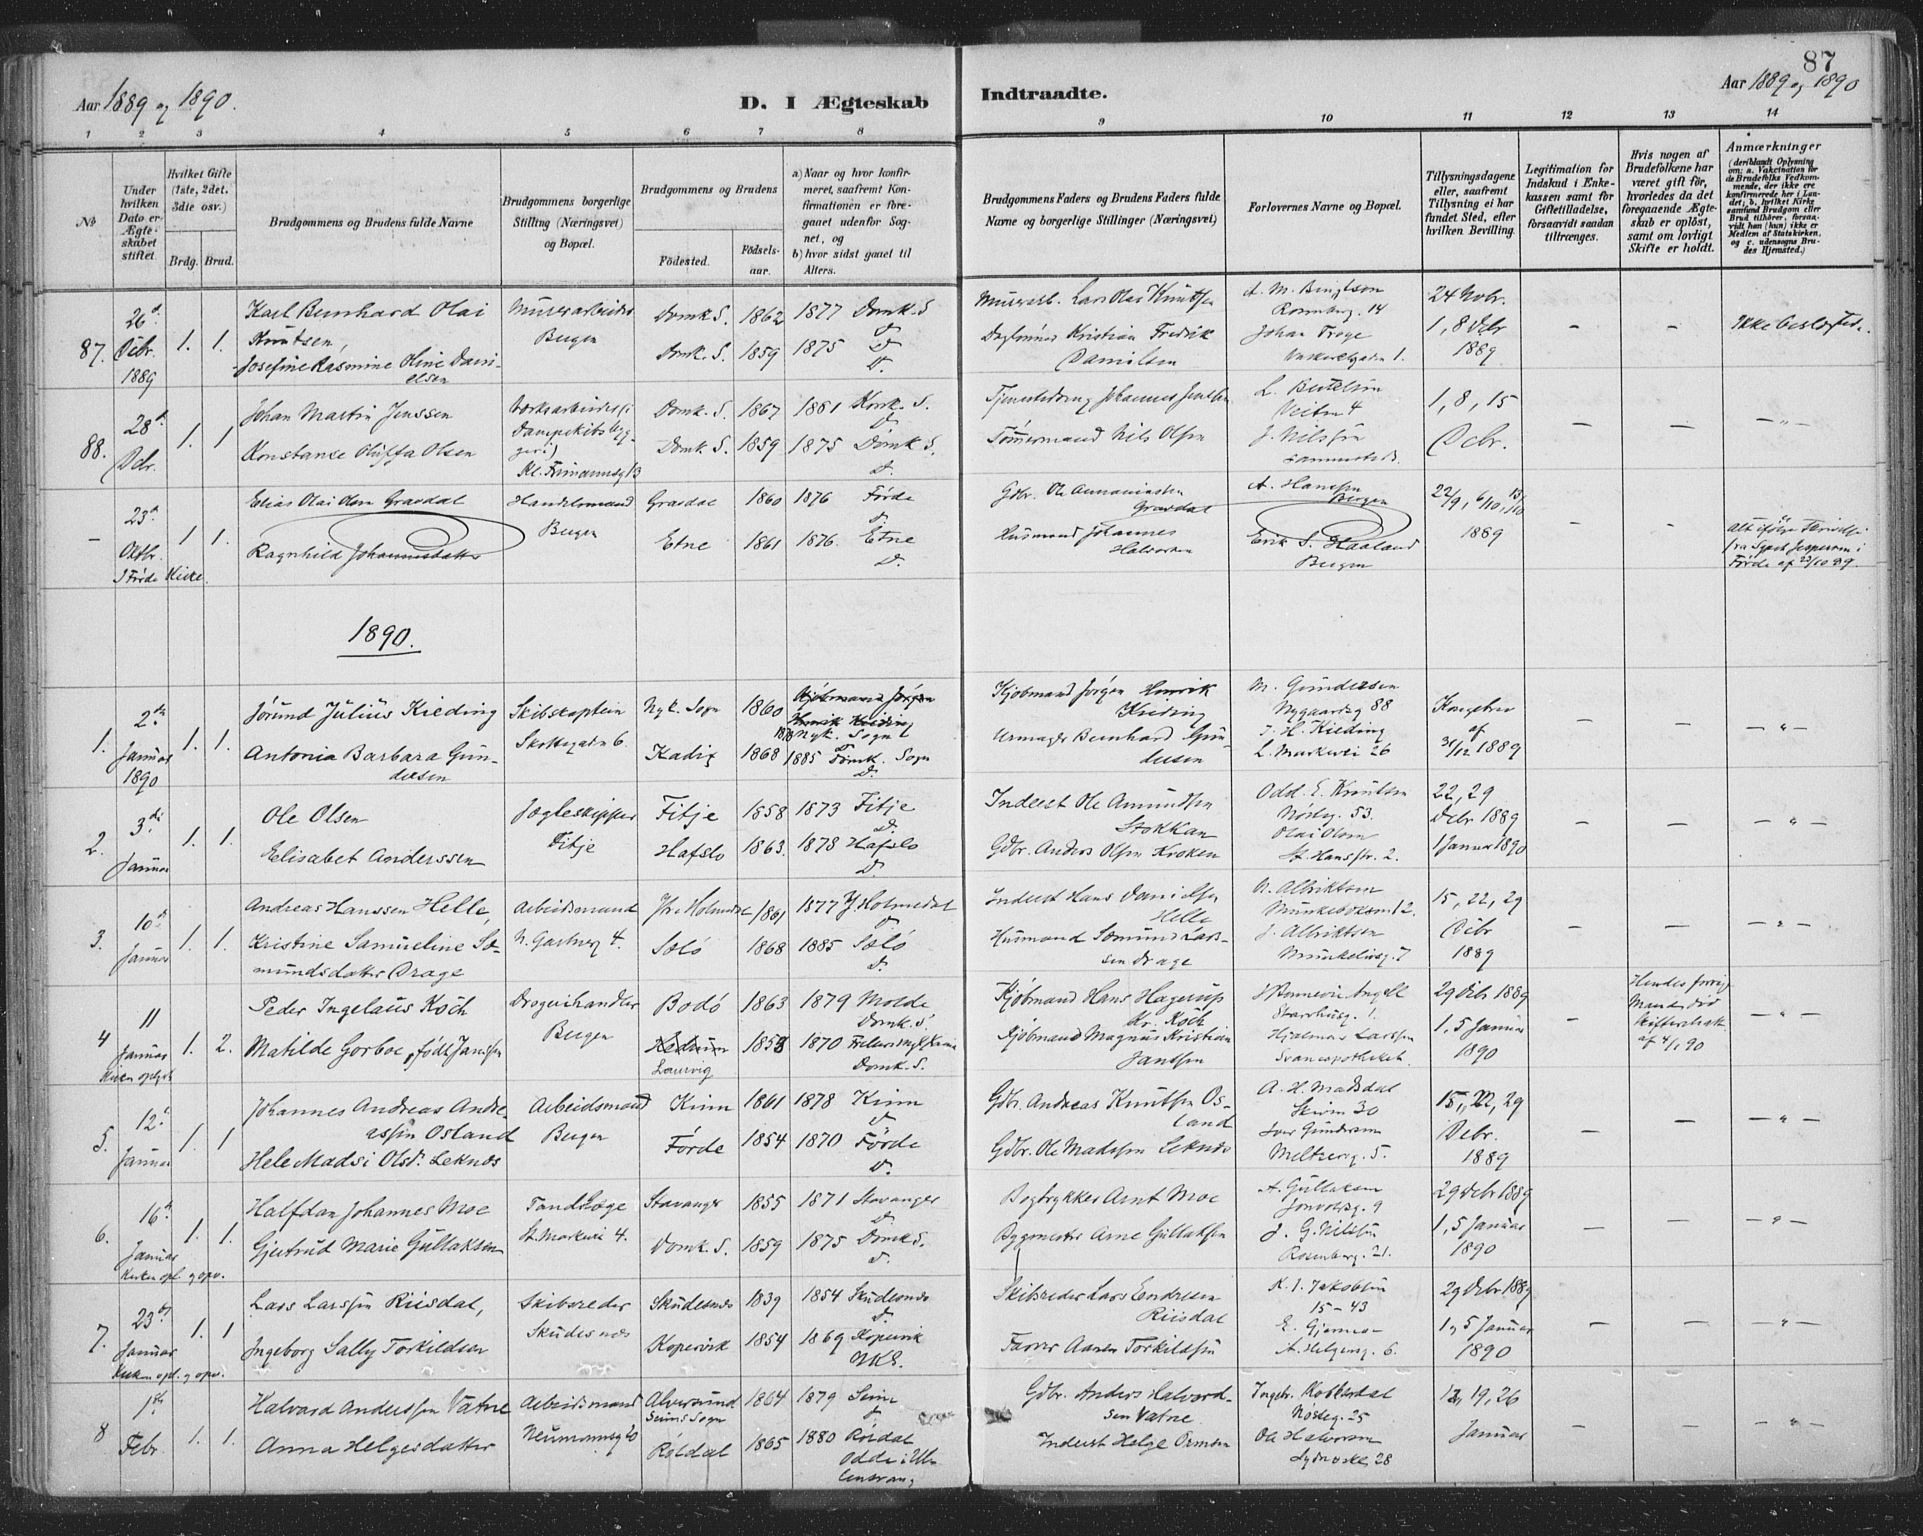 87
Aar 1889 og 1890.
D. I Ægteskab Indtraadte.
Aar 1889 og 1890
1 2 3 4 5 6 7 8 9 10 11 12 13 14
No
Under hvilken Dato er Ægteskabet stiftet
Hvilket Gifte (1ste, 2det, 3die osv.)
Brdg. Brud.
Brudgommens og Brudens fulde Navne
Brudgommens borgerlige Stilling (Næringsvei) og Bopæl.
Brudgommens og Brudens
Fødested.
Fødselsaar.
a) Naar og hvor konfirmeret, saafremt Konfirmationen er foregaaet udenfor Sognet, og
b) hvor sidst gaaet til Alters.
Brudgommens Faders og Brudens Faders fulde Navne og borgerlige Stillinger (Næringsvei)
Forlovernes Navne og Bopæl.
Tillysningsdagene eller, saafremt Tillysning ei har fundet Sted, efter hvilken Bevilling.
Legitimation for Indskud i Enkekassen samt for Giftetilladelse, forsaavidt saadan tiltrænges.
Hvis nogen af Brudefolkene har været gift før, hvorledes da det foregaaende Ægteskab er opløst, samt om lovligt Skifte er holdt.
Anmærkninger
(deriblandt Oplysning om: a. Vakcination for de Brudefolks Vedkommende, der ikke ere konfirmerede her i Landet; b. hvilket Kirkesamfund Brudgom eller Brud tilhører, forsaavidt han (hun) ikke er Medlem af Statskirken, og c. udensogns Brudes Hjemsted.)
87. 26d Debr. 1889 1. 1.
Karl Bernhard Olai Knutsen,
Josefine Rasmine Oline Danielsen
Murerarbeider Bergen
Domk. S. 1862 1877 Domk. S
Domk. S. 1859 1875 D. D.
Murerarb. Lars Olai Knutsen
Daglønner Kristian Fredrik Danielsen
A. M. Bengtson Rosenbg. 14
Johan Troye
24 Novbr. 1, 8 Debr 1889
– –
Ikke beslægted.
88. 28d Debr. 1. 1
Johan Martin Jenssen
Konstanse Oluffa Olsen
Værksarbeider (Dampskibsbyggeri)
Domk. S. 1867 1881 Kork. S. D
Domk. S. 1859 1875 Domk S. D.
Tjenestedreng Johannes Jenssen
Tømermand Nils Olsen
L. Bertelsen Veiten 4
J. Nilssen sammesteds.
1, 8, 15 Debr.
– – – " –
– 23d Oktbr. 1 1.
I Førde Kirke.
Elias Olai Olsen Gravdal
Ragnhild Johannesdatter
Handelsmand Bergen
Gravdal 1860 1876 Førde D.
Etne 1861 1876. Etne D.
Gdbr. Ole
Gravdal
Husmand Johannes Halvorsen
A. Hanssen Bergen
Erik S. Haaland Bergen
22/9, 6/10, 13/10 1889
– –
alt ifølge
fra Sgpst Jespersen i Førde af 23/10 89.
1890.
1. 2den Januar 1890 1. 1.
Jørund Julius Kieding
Antonia Barbara Gundersen
Skibskaptein
Skottegaden 6.
Nyk. Sogn 1860
Kadix 1868 1885 Domk. Sogn D.
Kjøbmand Jørgen Henrik Kieding
Urmager Bernhard Gundersen
M. Gundersen Nygaardsg 88
J. H. Kieding L. Markevei 26
Kongebrev af 31/12 1889
– – – " –
2. 3die Januar 1. 1.
Ole Olsen
Elisabet Anderssen
Jægteskipper Fitje
Fitje 1858 1873 Fitje D.
Hafslo 1863. 1878 Hafslo D.
Inderst Ole Amundsen Stokkan
Gdbr. Anders Olsen Kroken
Odd E. Knutsen Nøsteg. 53.
Olai Olsen St. Hansstr. 2.
22, 29 Debr 1889
1 Januar 1890
– – – " –
3. 10de Januar 1. 1.
Andreas Hanssen Helle,
Kristine Samueline Sæmundsdatter Drage
Arbeidsmand
N. Gartnerg 4.
Ytre Holmedal 1861 1877 Y. Holmedal D
Sølø 1868 1885 Sølø D.
Inderst Hans Danielsen Helle
Husmand Sæmund Larssen Drage
A. Albriktsen
J. Albriktsen Munkelivsg. 7
15, 22, 29 Debr 1889
– – – " –
4 11 Januar 1. 2.
Peder Ingelaus Koch
Matilde Gorboe, født Janssen
Drogerihandler Bergen
Bodø 1863 1879 Molde Domk. S.
Laurvig 1858 1870
Domk. S.
Kjøbmand Hans Hagerup Kr. Koch
Kjøbmand Magnus Kristian Janssen
Hjalmar Larssen Svaneapotheket
29 Debr 1889
1, 5 Januar 1890
–
Hendes forrige Mand er død
Skifteattest af 4/1 90
– " –
5. 12te Januar 1. 1
Johannes Andreas Andreassen Osland
Hele Madsi Olsd. Leknæs
Arbeidsmand Bergen
Kinn 1861 1878 Kinn D
Førde 1854 1870 Førde D.
Gdbr. Andreas Knutsen Osland
Gdbr. Ole Madssen Leknæs
A. H. Madsdal Skiven 30
Iver Gundersen Meltzersg. 5.
15, 22, 29 Debr. 1889
– – – " –
6. 16de Januar 1. 1.
Kirken opl. og opv.
Halfdan Johannes Moe
Gjertrud Marie Gullaksen
Tandlæge
St. Markevei 4.
Stavanger 1855 1871 Stavanger D
Domk. S. 1859 1875 Domk S. D.
Bogtrykker Arnt Moe
Bygmester Arne Gullaksen
A. Gullaksen
J. G. Nilssen Rosenberg. 21.
29 Debr 1889
1, 5 Januar 1890
– – – " –
7. 23de Januar 1. 1
Kirken opl. og opv.
Lars Larssen Riisdal,
Ingeborg Sally Torkildsen
Skibsreder Skudesnæs
Skudesnæs 1839 1854 Skudesnæs D.
Kopervik 1854 1869 Kopervik NKS.
Skibsreder Lars Endresen Riisdal
Farver Aanen Torkildsen
K. I. Jakobsen 15 – 43
E. Gjerness A. Helgensg. 6.
29 Debr 1889
1, 5 Januar 1890
– – – " –
8 1ste Febr. 1. 1.
Halvard Anderssen Vatne
Anna Helgesdatter
Arbeidsmand
Neumannsg 20
Alversund Seims Sogn 1864 1879 Seim D
Røldal 1865 1880 Røldal
Odde i Ullensvang
Gdbr. Anders Halvordsen Vatne
Inderst Helge Ormsen
Ingebr. Kobberdal Nøsteg. 25
Ole Halvorsen Sydneskl. 28
12, 19, 26 Januar
– – – " –